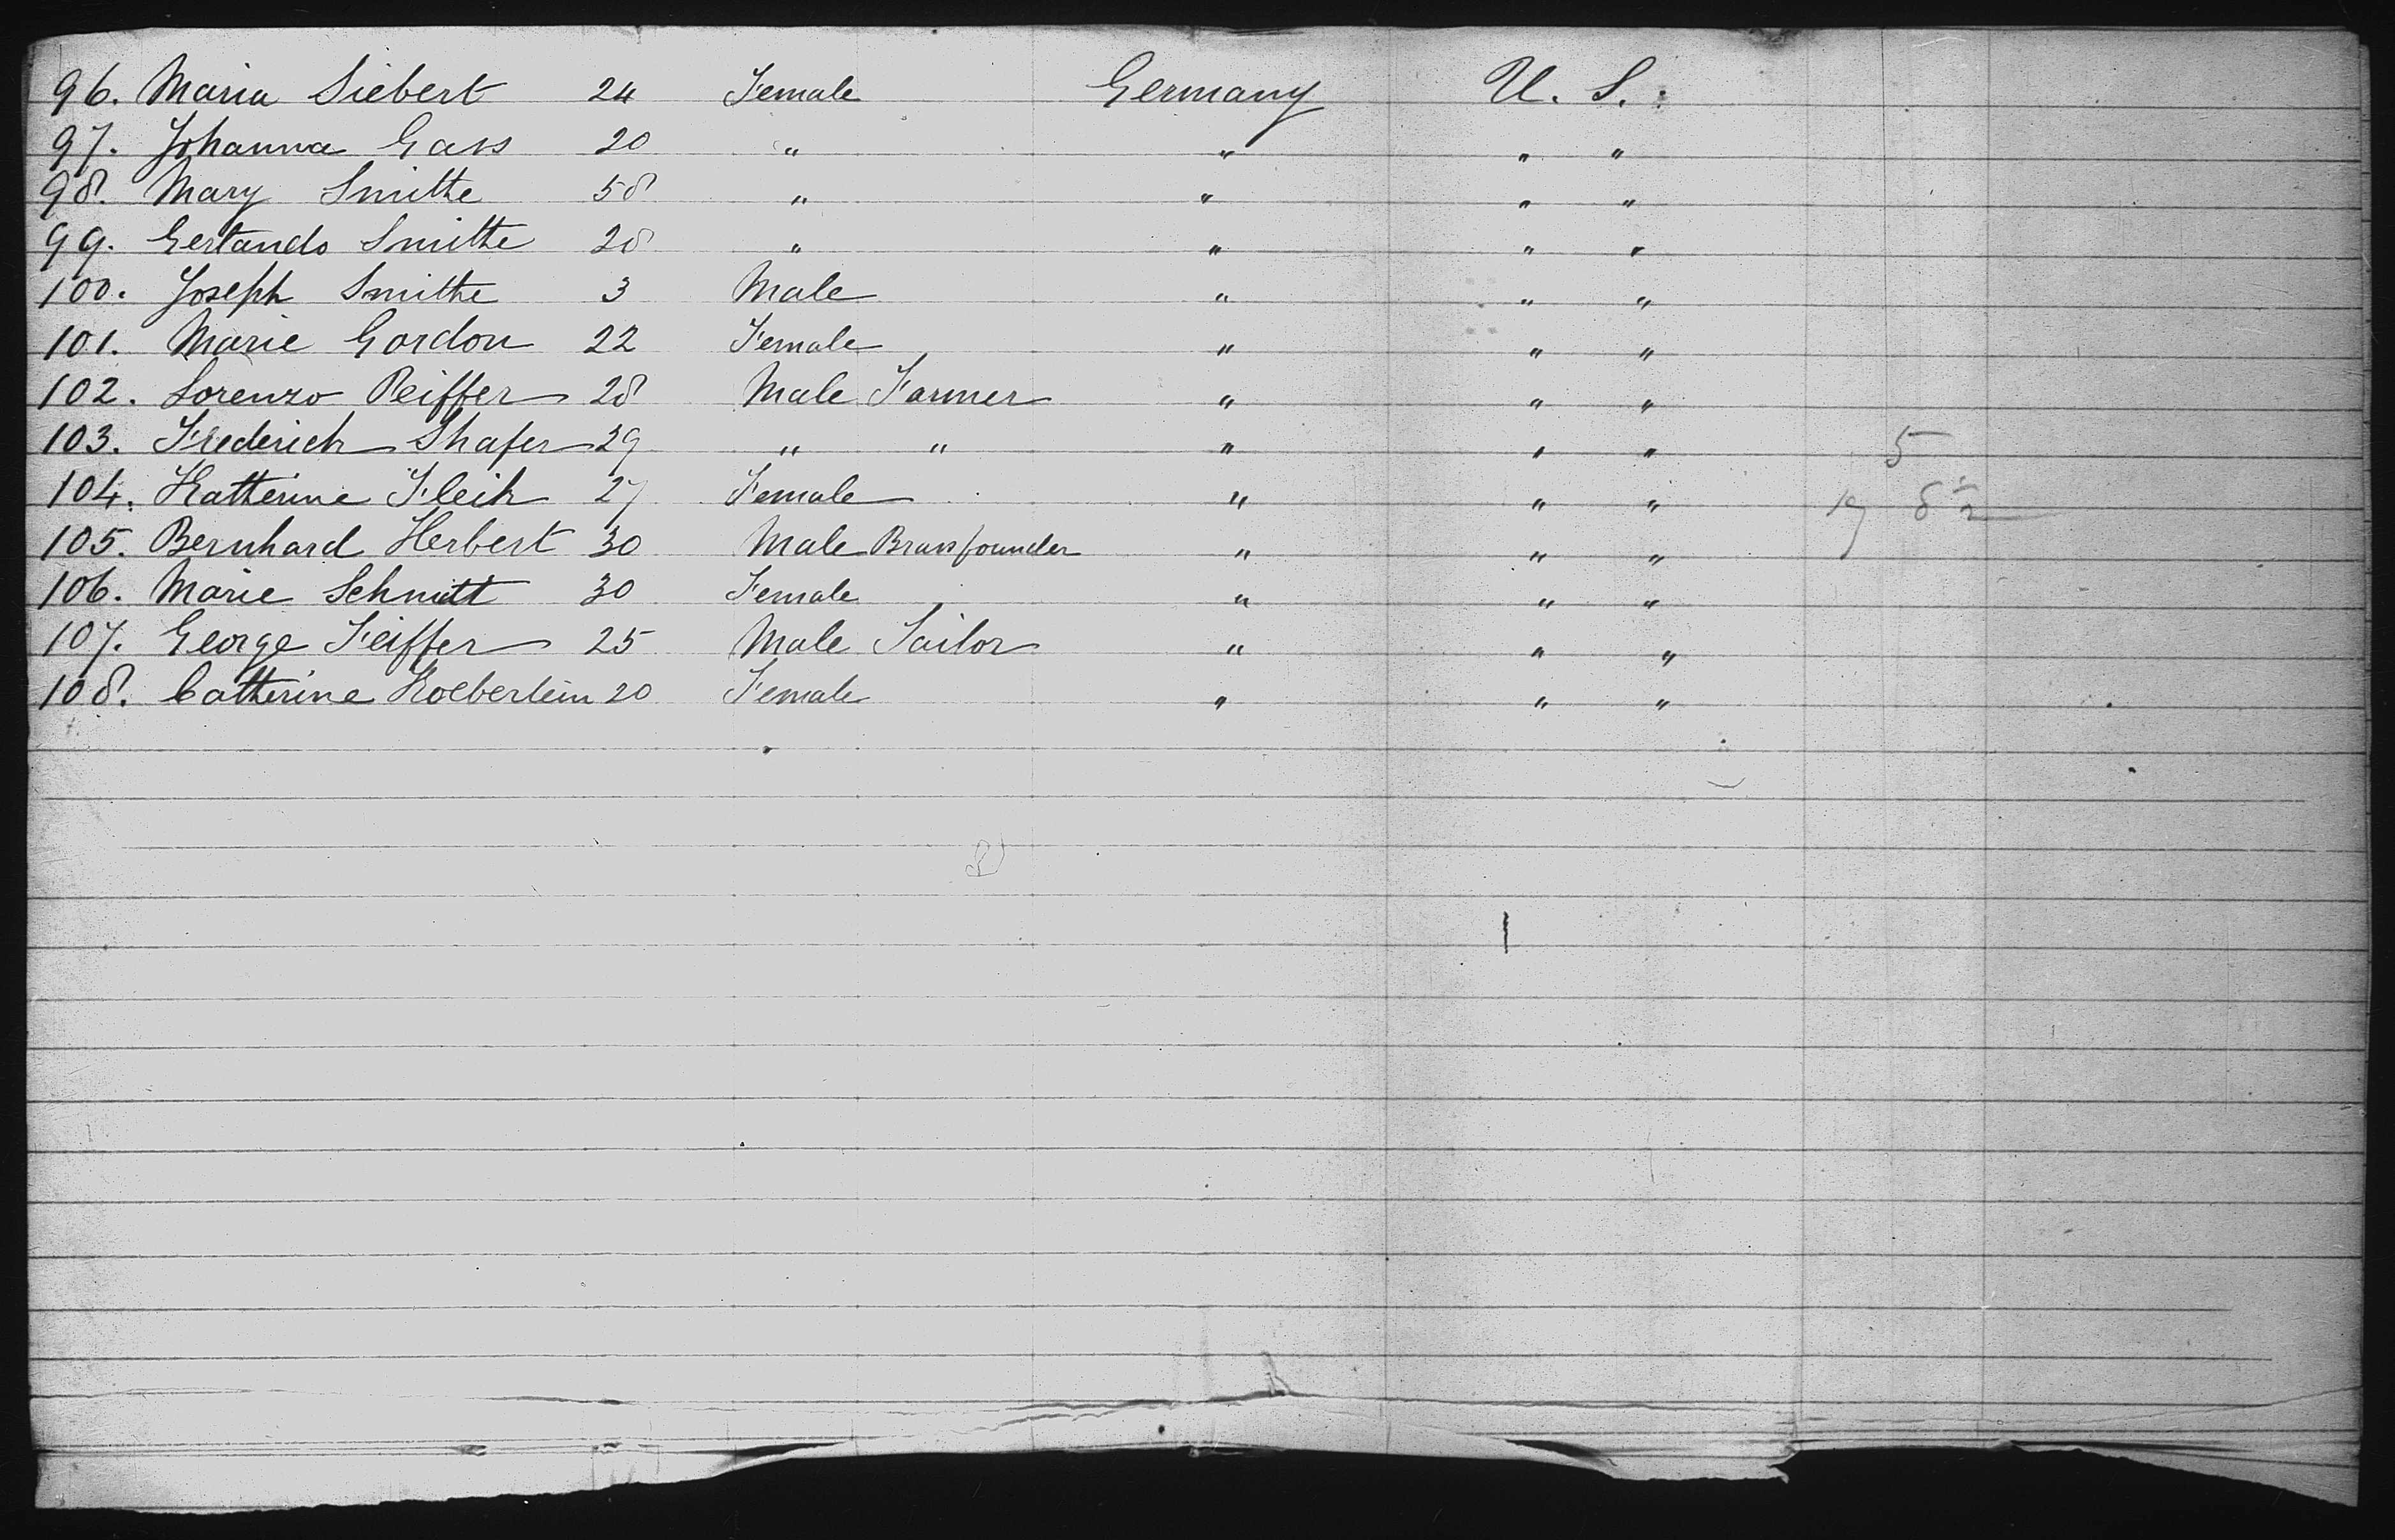 96. Maria Siebert 24 Female Germany U. S.
97. Johanna Gass 20 " " " "
98. Mary Smithe 58 " " " "
99. Gertands Smithe 28 " " " "
100. Joseph Smithe 3 Male " " "
101. Marie Gordon 22 Female " " "
102. Lorenzo Peiffer 28 Male Farmer " " "
103. Frederich Shafer 29 " " " " "
5
104. Katterine Fleih 27 Female " " "
105. Bernhard Herbert 30 Male Brassfounder " " "
106. Marie Schmitt 30 Female " " "
107. George Feiffer 25 Male Sailor " " "
108. Catterine Koeberlein 20 Female " " "